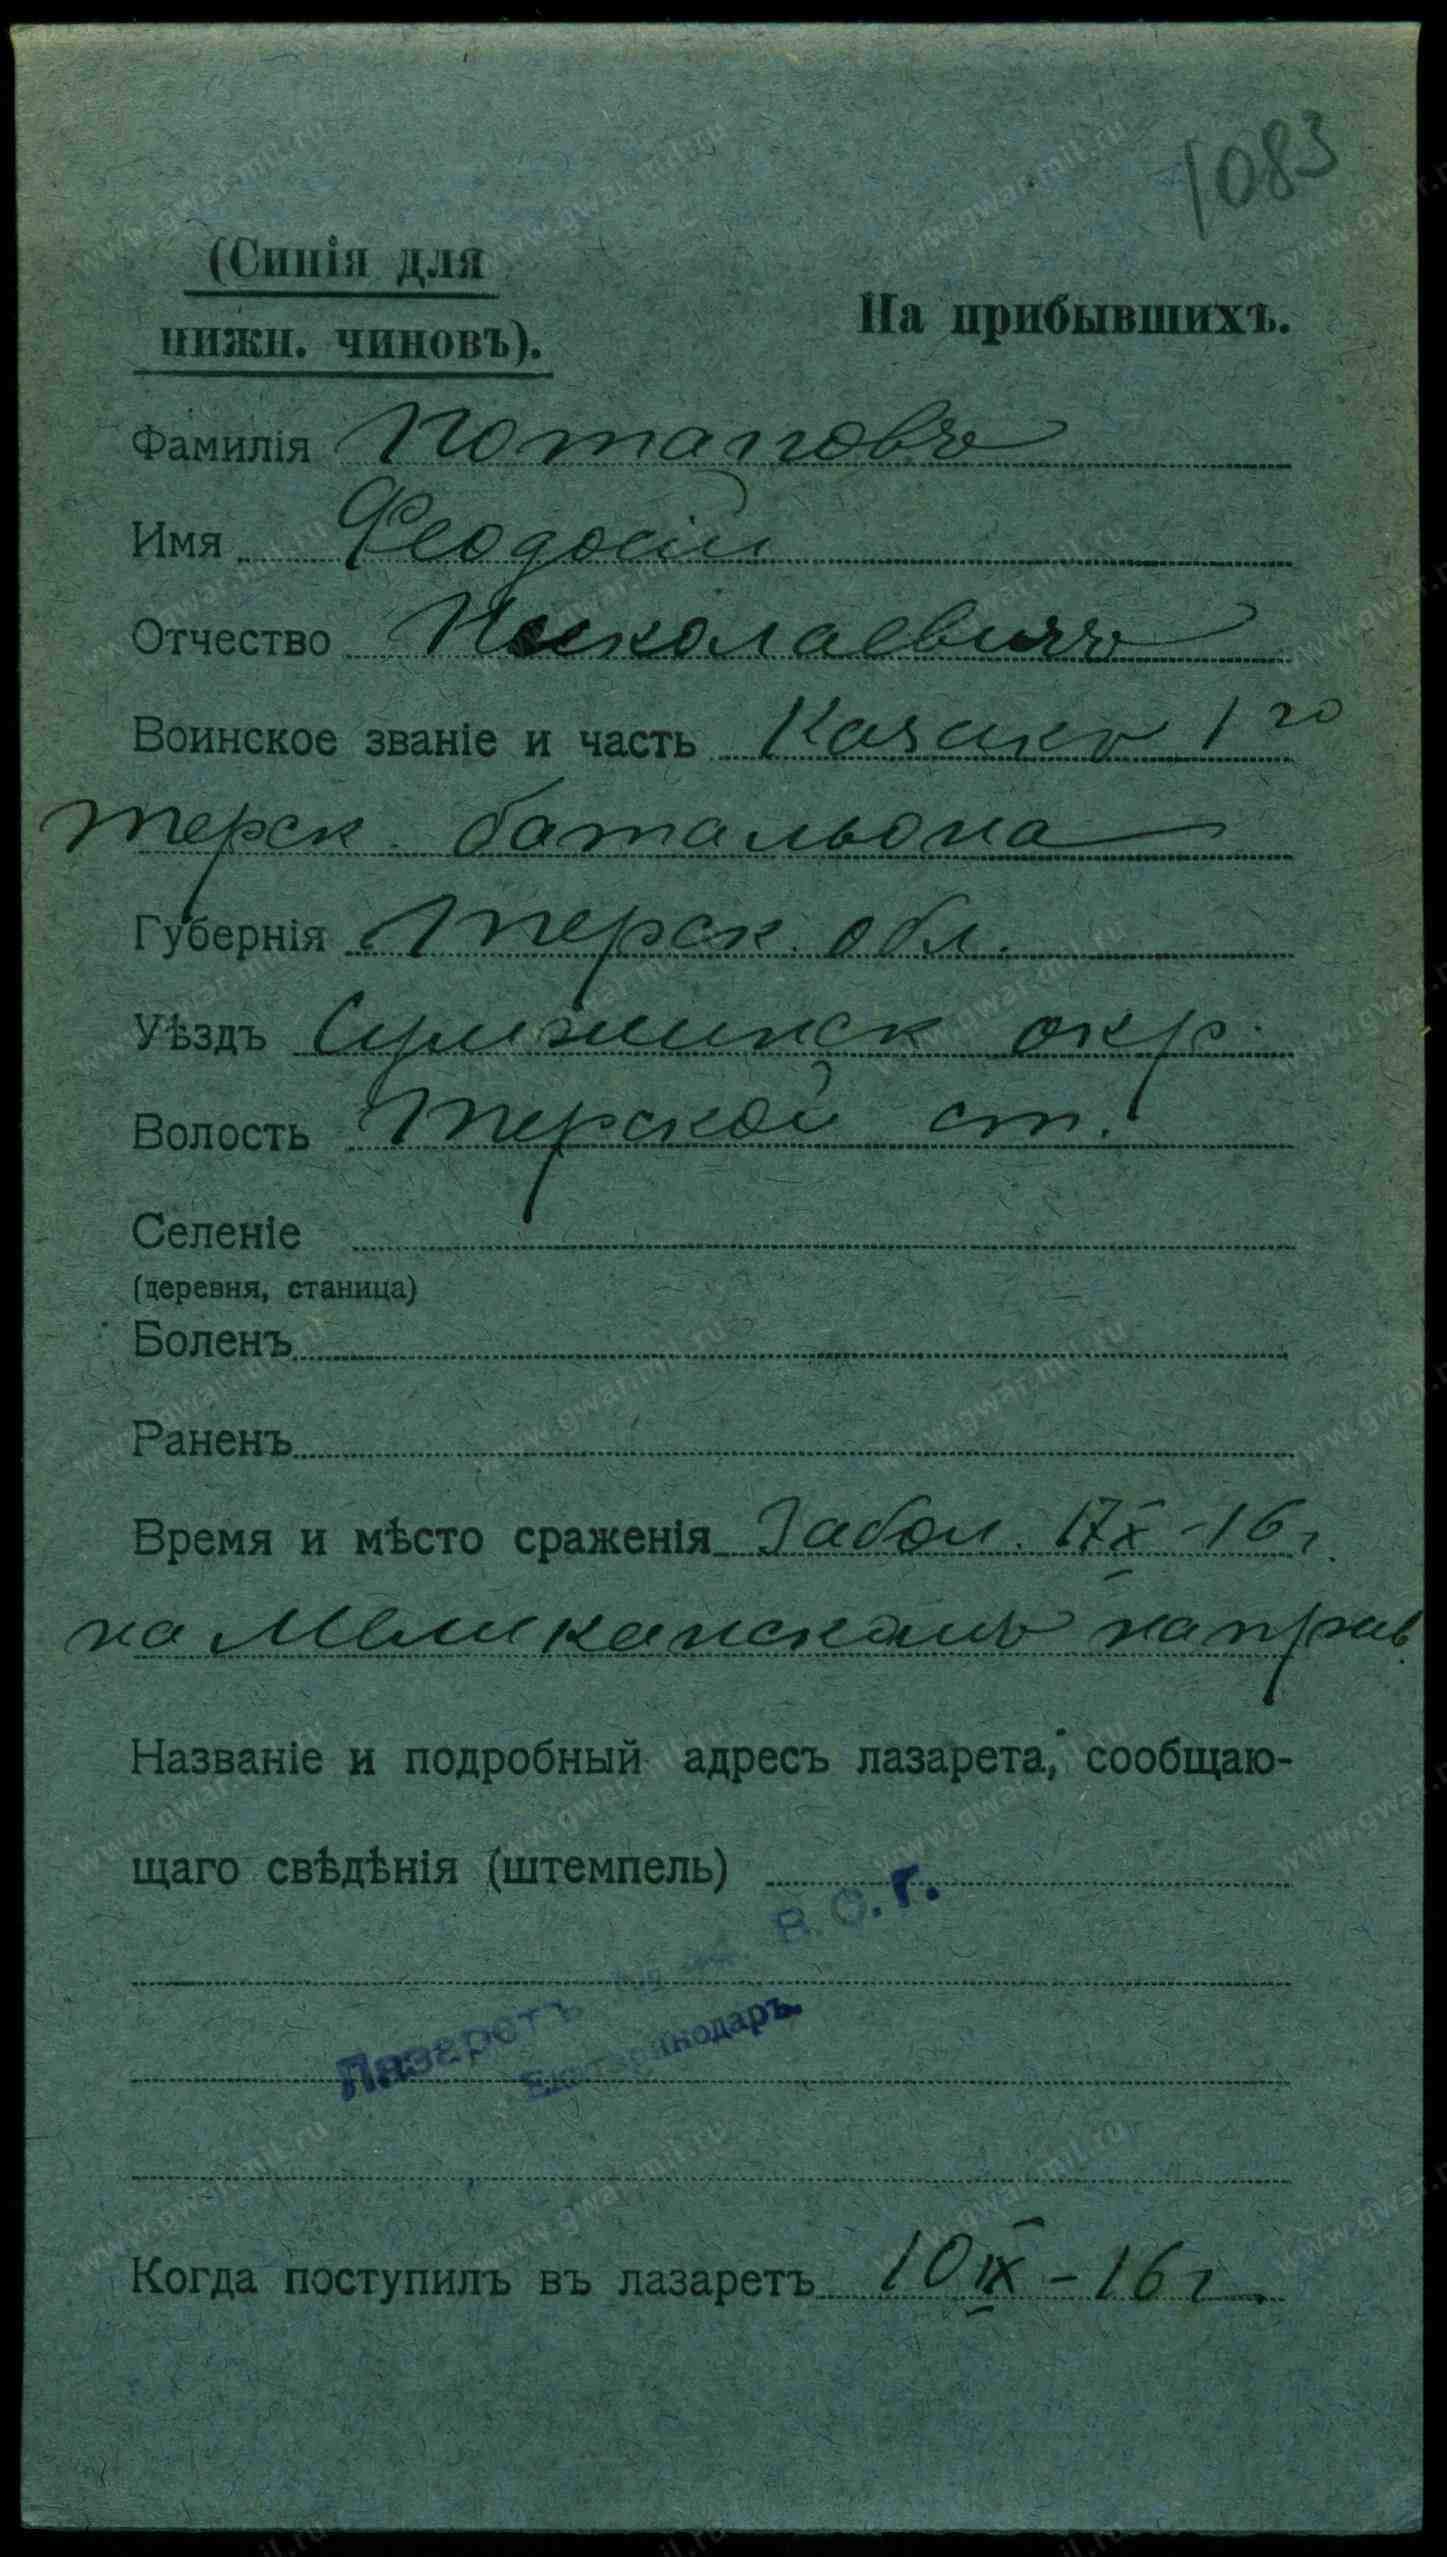 1083
(Синія для
нижн. чиновъ).
На прибывшихъ.
Фамилія Потаповъ
Имя Феодосій
Отчество Николаевичъ
Воинское званіе и часть Казакъ 1го
Терск. батальона
Губернія Терск. обл.
Уѣздъ Сунженск окр.
Волость Терской ст.
Селеніе
(деревня, станица)
Боленъ
Раненъ
Время и мѣсто сраженія Забол. 17 X - 16 г.
на направ.
Названіе и подробный адресъ лазарета, сообщаю-
щаго свѣдѣнія (штемпель)
Лазаретъ В. О. Г.
Екатеринодаръ.
Когда поступилъ въ лазаретъ 10 IX - 16 г.
www.gwar.mil.ru